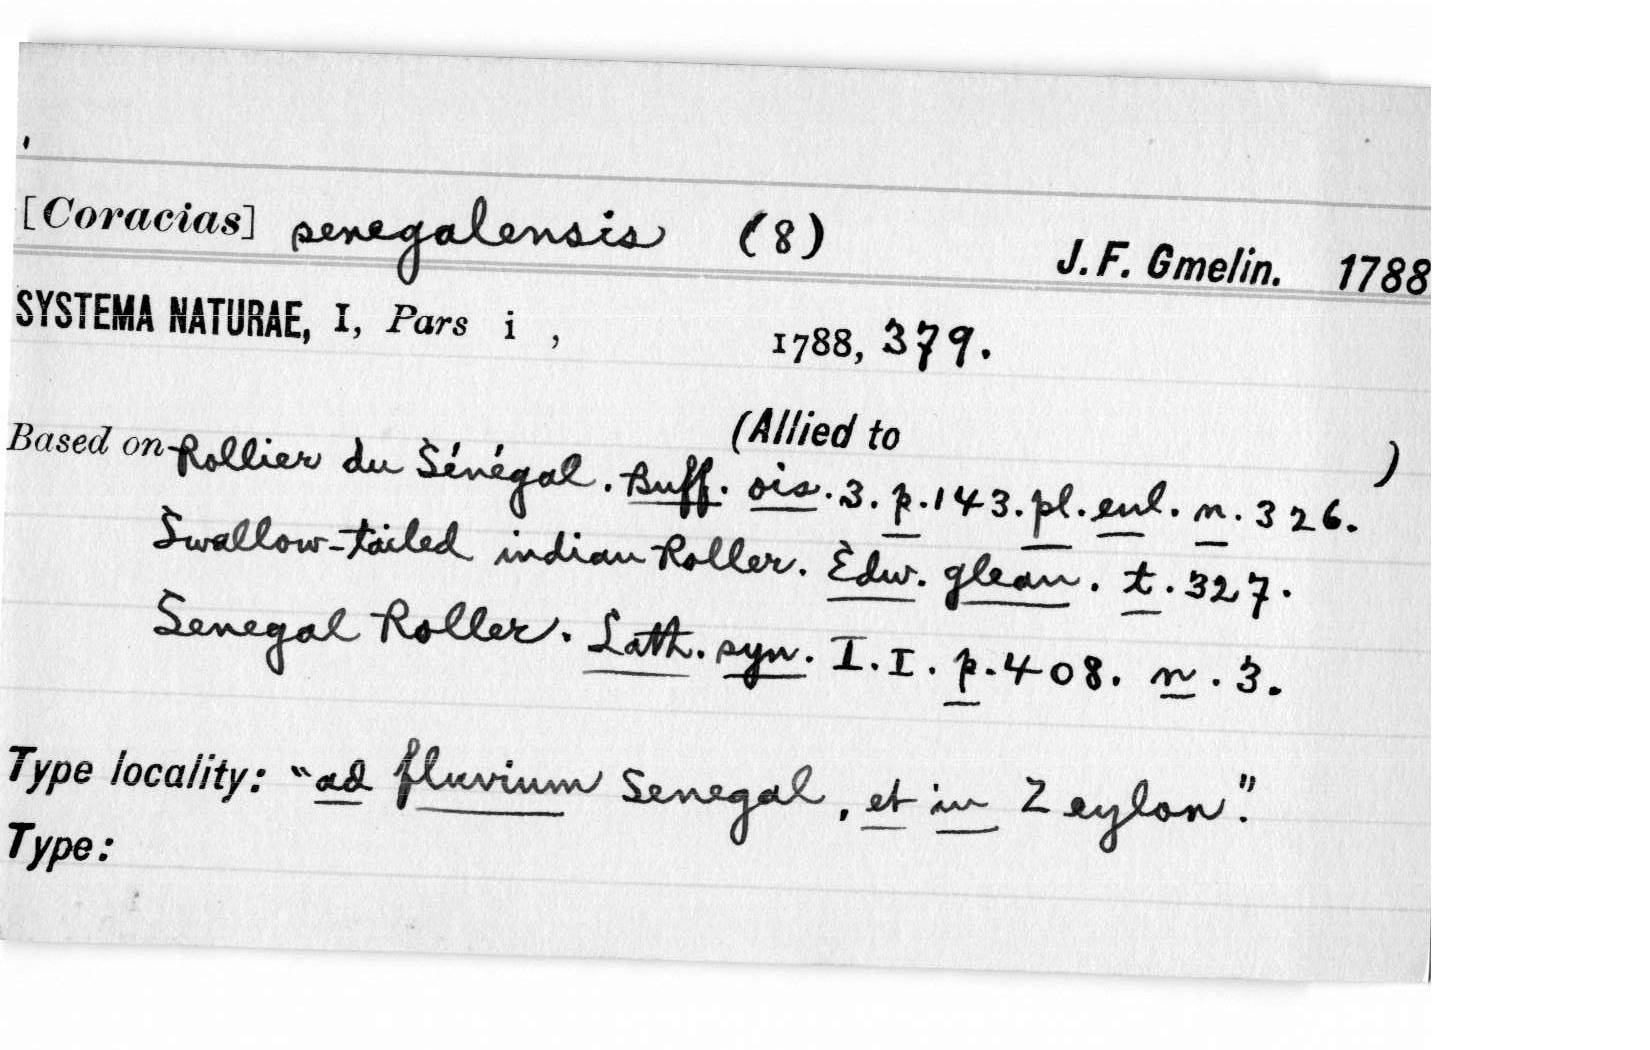 [Coracias] senegalensis (8) J. F. Gmelin. 1788
SYSTEMA NATURAE, I, Pars i , 1788, 379.
(Allied to )
Based on Rollier du Sénégal. Buff. ois. 3. p. 143. pl. enl. n. 326.
Swallow-tailed indian Roller. Edw. glean. t. 327.
Senegal Roller. Lath. syn. I. I. p. 408. n. 3.
Type locality: "ad fluvium Senegal, et in Zeylon".
Type: